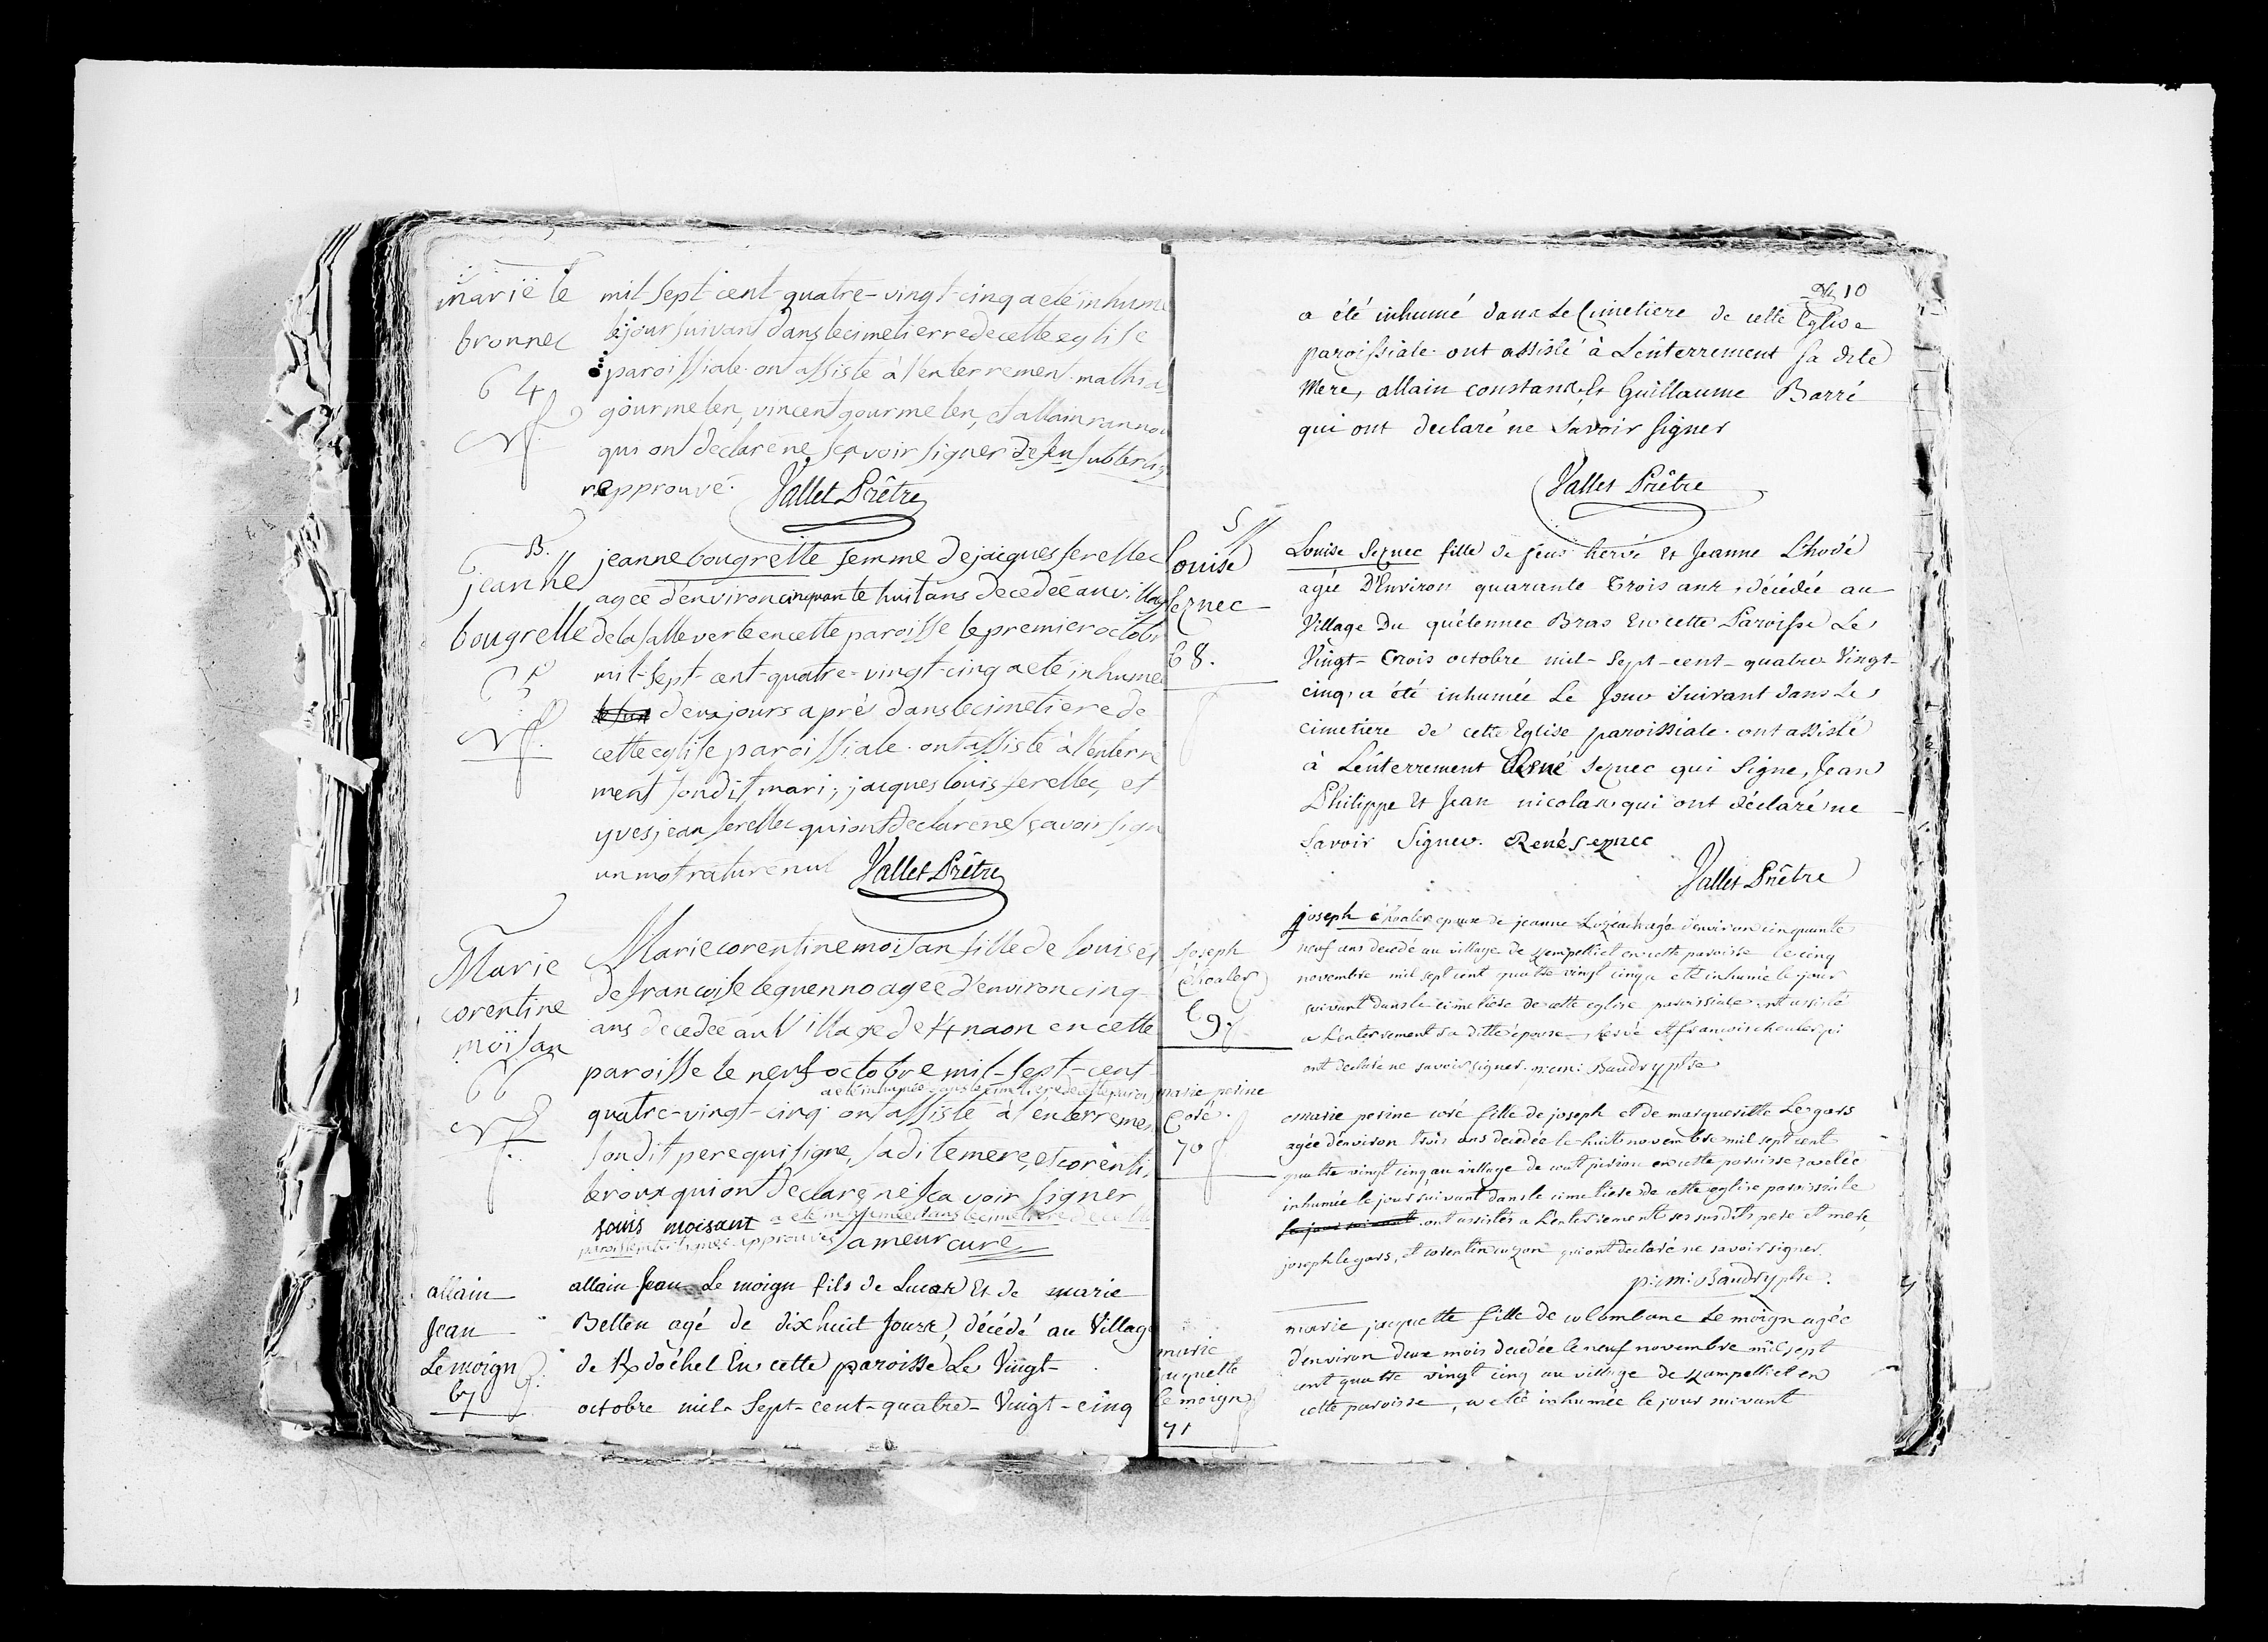 marie le
bronnec
64
mil-sept-cent-quatre-vingt-cinq a eté inhumé
le jour suivant dans le cimetierre de cette eglise
paroissiale. on assiste a l'enterrement. mathia
gourmelen, vincent gourmelen, et allain rannou
qui ont declare ne sçavoir signer
approuvé. Vallet Prêtre
B.
jeanne
bougrelle
jeanne bougrelle femme de jacques serellec
agée d'environ cinquante huit ans decedée au village
de la salle verte en cette paroisse le premier octobr
mil-sept-cent-quatre-vingt-cinq a eté inhumé
deux jours aprés dans le cimetiere de
cette eglise paroissiale. ont assisté à l'enterre
ment son dit mari, jacques louis serellec, et
yves jean serellec qui ont declaré ne sçavoir sign
un mot raturé nul Vallet Prêtre
Marie
corentine
moisan
66
Marie corentine moisan fille de louis et
de francoise leguenno agée d'environ cinq
ans decedée au Village de K naon en cette
paroisse le neuf octobre mil-sept-cent-
a eté inhumée dans le cimetiere de cette paroi
quatre-vingt-cinq. ont assisté à l'enterremen
son dit pere qui signe, sa dite mere, et corenti
leroux qui ont declaré ne sça voir signer
louis moisant a eté inhumée dans le cimetiere de cette
approuvés lameur curé
allain
Jean
Le moign
67
allain Jean Le moign fils de Lucas Et de marie
Bellen agé de dix huit Jours, décédé au Village
de en cette paroisse Le Vingt-
octobre mil-Sept-cent-quatre-Vingt-cinq
10
a été inhumé dans Le Cimetiere de cette Eglise
paroissiale. ont assisté à L'enterrement sa dite
Mere, allain constans, Et Guillaume Barré
qui ont declaré ne Savoir signer
Vallet Prêtre
Louise
seznec
68.
Louise Seznec fille de feus hervé Et Jeanne L'hodé
agée D'Environ quarante Trois ans, décédée au
Village Du quélennec Bras En cette Paroisse Le
Vingt-Trois octobre mil-Sept-cent-quatre-Vingt-
cinq, a été inhumée Le Jour Suivant dans Le
cimetiere de cette Eglise paroissiale. ont assisté
à L'enterrement René Seznec qui Signe, Jean
Philippe Et Jean nicolas qui ont déclaré ne
Savoir Signer. René Seznec
Vallet Prêtre
joseph
69
joseph epoux de jeanne agé d'environ cinquante
neuf ans decedé au village de en cette paroisse le cinq
novembre mil sept cent quatre-vingt cinq a eté inhumé le jour
suivant dans le cimetiere de cette eglise paroissiale. ont assisté
a L'enterrement sa ditte épouse, hervé et francois qui
ont declaré ne savoir signer. p:m: Baudry ptre
marie perine
Coré.
70
marie perine coré fille de joseph et de marguerite Le gars
agée d'environ trois ans decedée le huit novembre mil sept cent
quatre vingt cinq au village de en cette paroisse, a etée
inhumée le jour suivant dans le cimetiere de cette eglise paroissiale
le jour suivant. ont assistés a L'enterrement ses susdits pere et mere,
joseph le gars, et corentin cuzon qui ont declaré ne savoir signer.
p:m: Baudry ptre.
marie
jaquette
le moign
71
marie jacquette fille de colombane Le moign agée
d'environ deux mois decedée le neuf novembre mil sept
cent quatre vingt cinq au village de en
cette paroisse, a eté inhumée le jour suivant